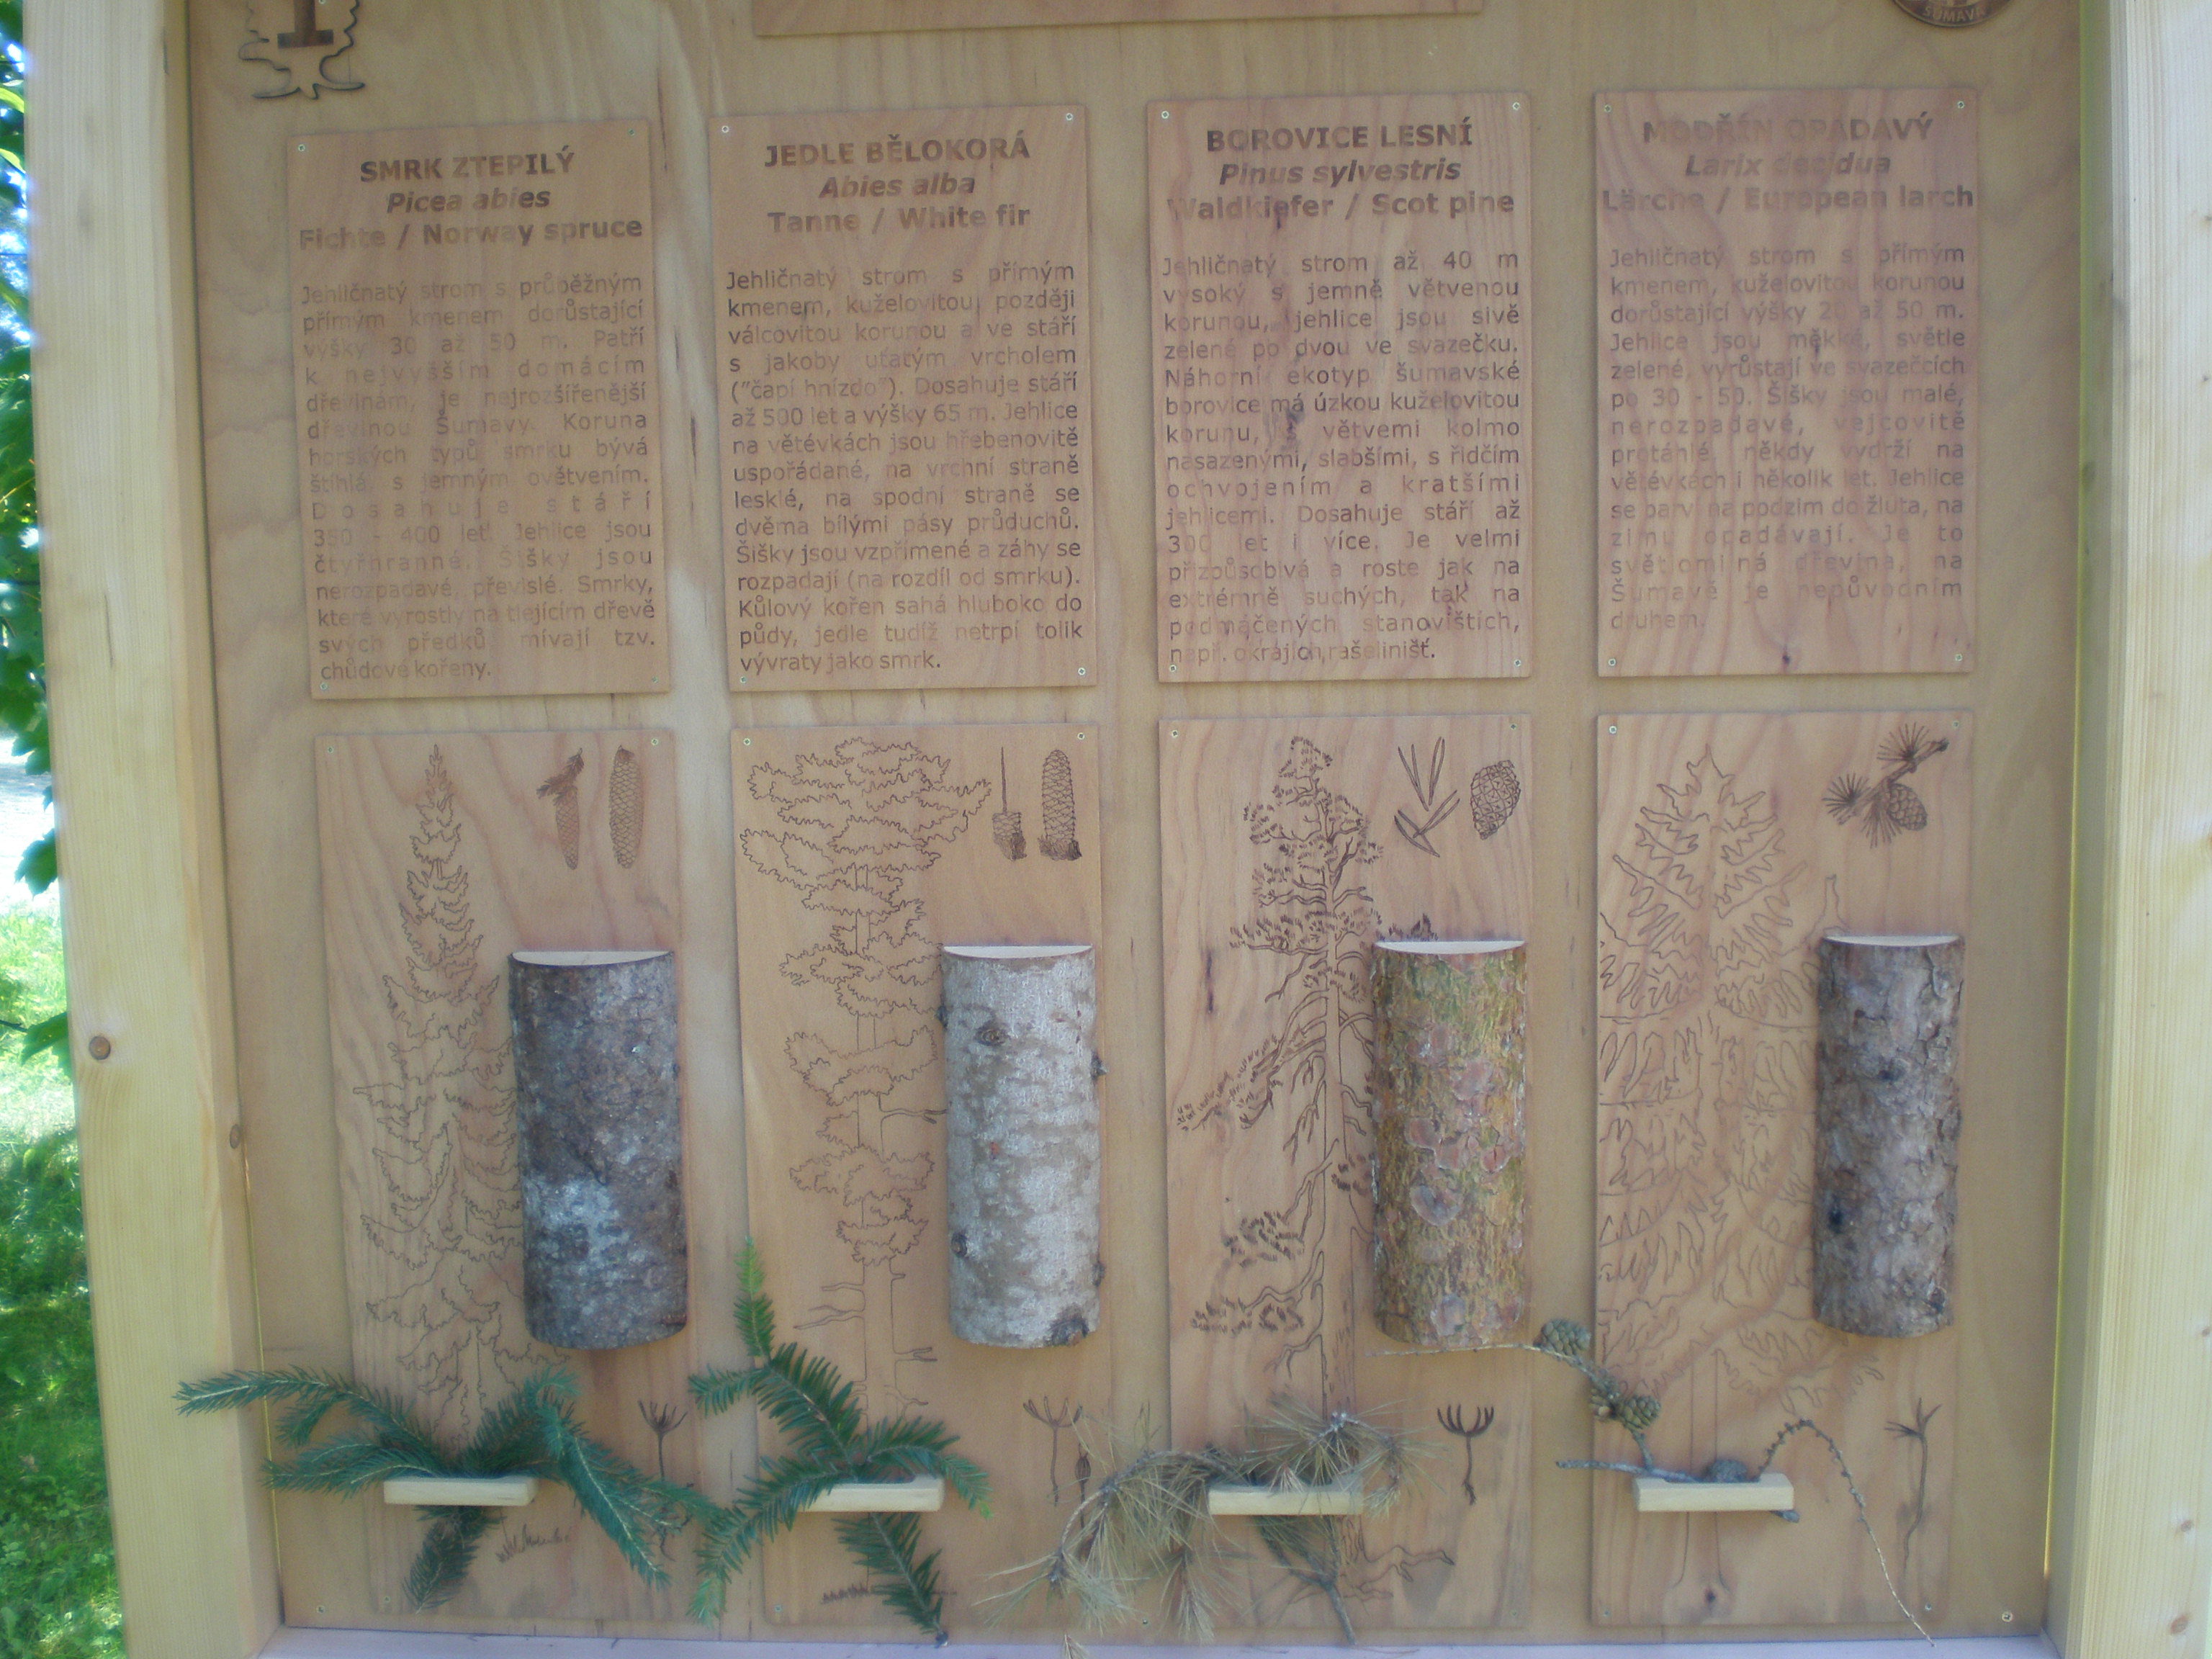 ŠUMAVA
SMRK ZTEPILÝ
Picea abies
Fichte / Norway spruce
Jehličnatý strom s průběžným
přímým kmenem dorůstající
výšky 30 až 50 m. Patří
k nejvyšším domácím
dřevinám, je nejrozšířenější
dřevinou Šumavy. Koruna
horských typů smrku bývá
štíhlá s jemným ovětvením.
Dosahuje stáří
350 - 400 let. Jehlice jsou
čtyřhranné. Šišky jsou
nerozpadavé, převislé. Smrky,
které vyrostly na tlejícím dřevě
svých předků mívají tzv.
chůdové kořeny.
JEDLE BĚLOKORÁ
Abies alba
Tanne / White fir
Jehličnatý strom s přímým
kmenem, kuželovitou později
válcovitou korunou a ve stáří
s jakoby uťatým vrcholem
("čapí hnízdo"). Dosahuje stáří
až 500 let a výšky 65 m. Jehlice
na větévkách jsou hřebenovitě
uspořádané, na vrchní straně
lesklé, na spodní straně se
dvěma bílými pásy průduchů.
Šišky jsou vzpřímené a záhy se
rozpadají (na rozdíl od smrku).
Kůlový kořen sahá hluboko do
půdy, jedle tudíž netrpí tolik
vývraty jako smrk.
BOROVICE LESNÍ
Pinus sylvestris
Waldkiefer / Scot pine
Jehličnatý strom až 40 m
vysoký s jemně větvenou
korunou, jehlice jsou sivě
zelené po dvou ve svazečku.
Náhorní ekotyp šumavské
borovice má úzkou kuželovitou
korunu, s větvemi kolmo
nasazenými, slabšími, s řidčím
ochvojením a kratšími
jehlicemi. Dosahuje stáří až
300 let i více. Je velmi
přizpůsobivá a roste jak na
extrémně suchých, tak na
podmáčených stanovištích,
např. okrajích rašelinišť.
MODŘÍN OPADAVÝ
Larix decidua
Lärche / European larch
Jehličnatý strom s přímým
kmenem, kuželovitou korunou
dorůstající výšky 20 až 50 m.
Jehlice jsou měkké, světle
zelené, vyrůstají ve svazečcích
po 30 - 50. Šišky jsou malé,
nerozpadavé, vejcovitě
protáhlé, někdy vydrží na
větévkách i několik let. Jehlice
se barví na podzim do žluta, na
zimu opadávají. Je to
světlomilná dřevina, na
Šumavě je nepůvodním
druhem.